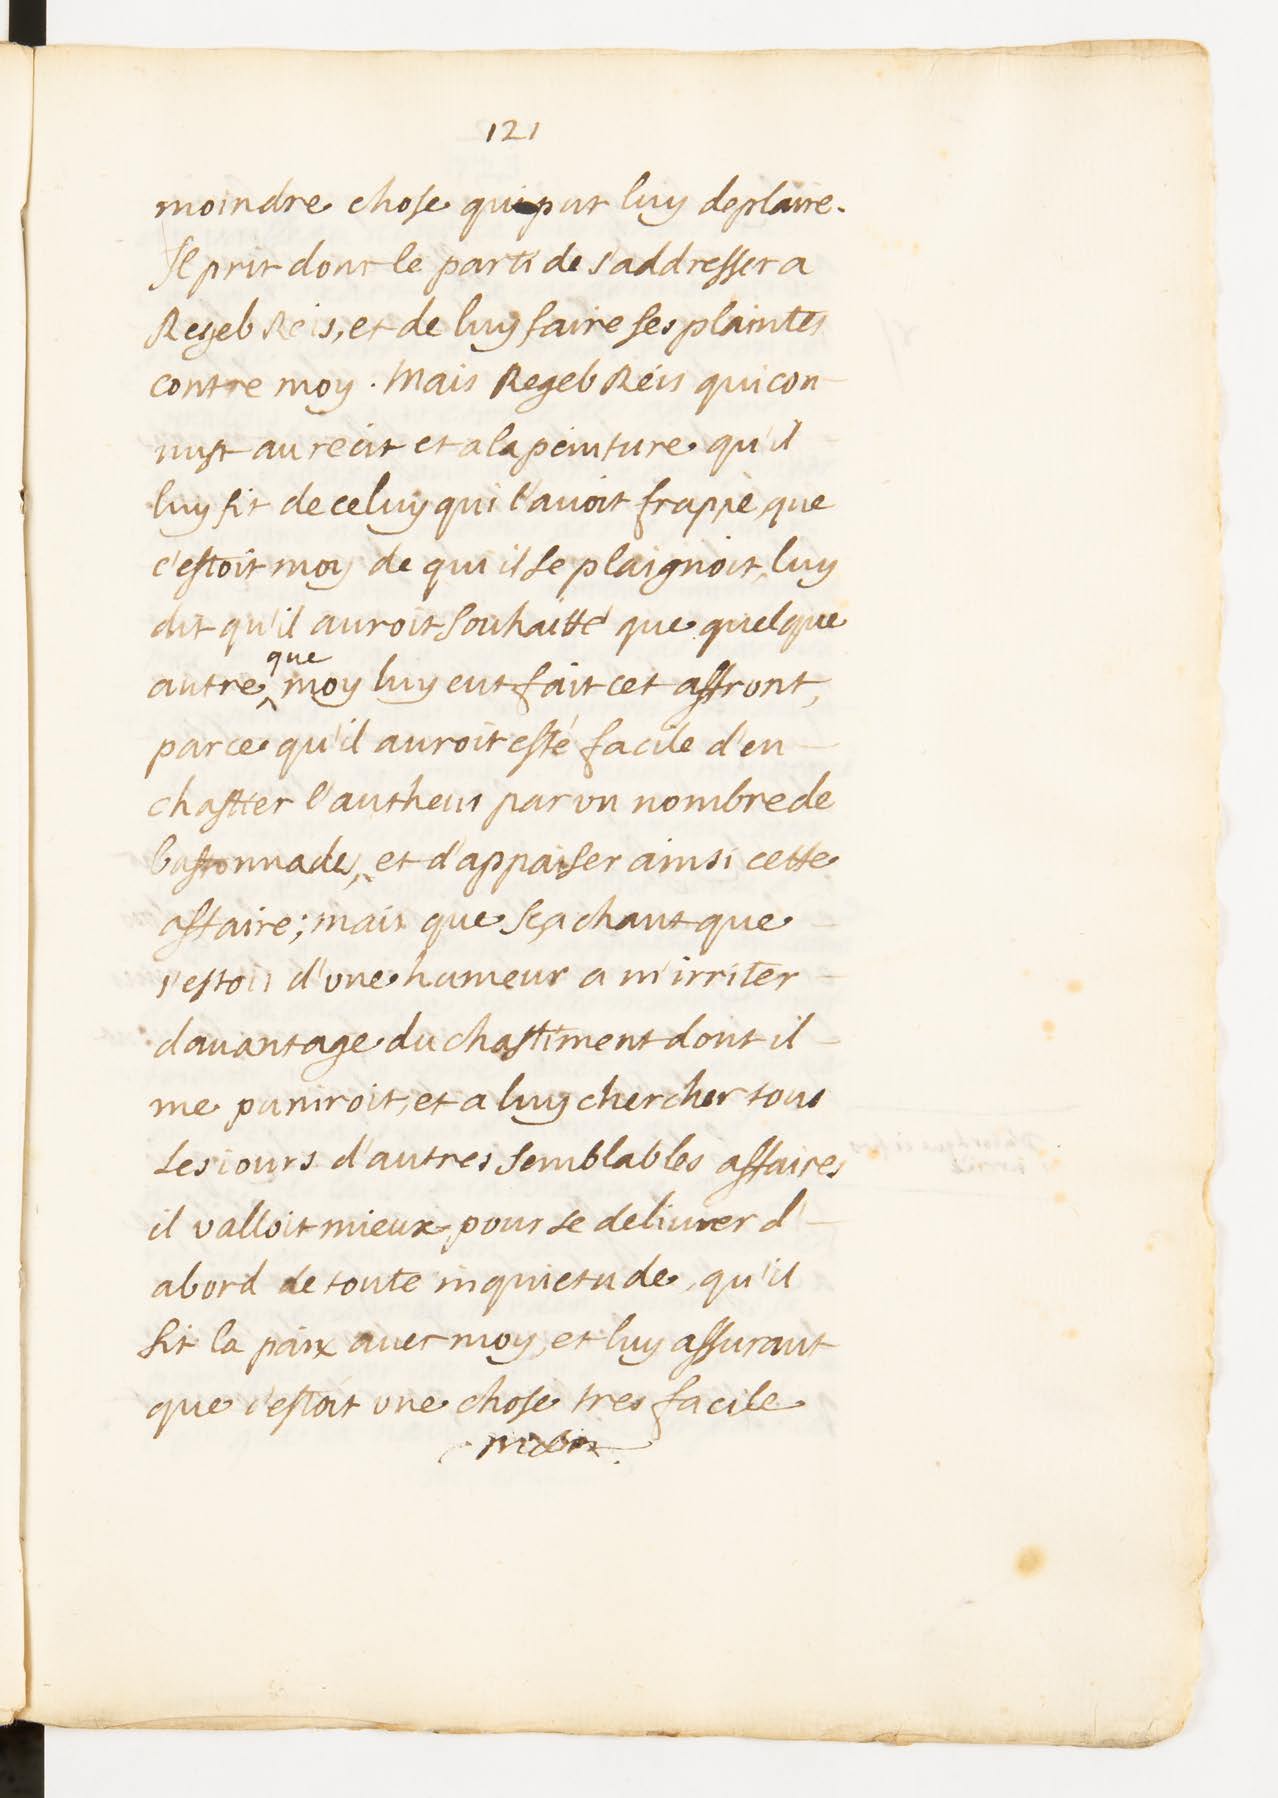 121
moindre chose qui put luy deplaire.
Il prit donc le parti de s'addresser a
Regeb Reis, et de luy faire ses plaintes
contre moy. Mais Regeb Réis qui con-
nust au recit et a la peinture qu'il
luy fit de celuy qui l'auoit frappé, que
c'estoit moy de qui il se plaignoit, luy
dit qu'il auroit souhaitté que quelque
autre que moy luy eut fait cet affront,
parce qu'il auroit esté facile d'en
chastier l'autheur par vn nombre de
bastonnades, et d'appaiser ainsi cette
affaire; mais que sçachant que
i'estois d'vne humeur a m'irriter
dauantage du chastiment dont il
me puniroit, et a luy chercher tous
les iours d'autres semblables affaires
il valloit mieux pour se deliurer d'
abord de toute inquietude, qu'il
fit la paix auec moy, et luy assurant
que c'estoit vne chose tres facile